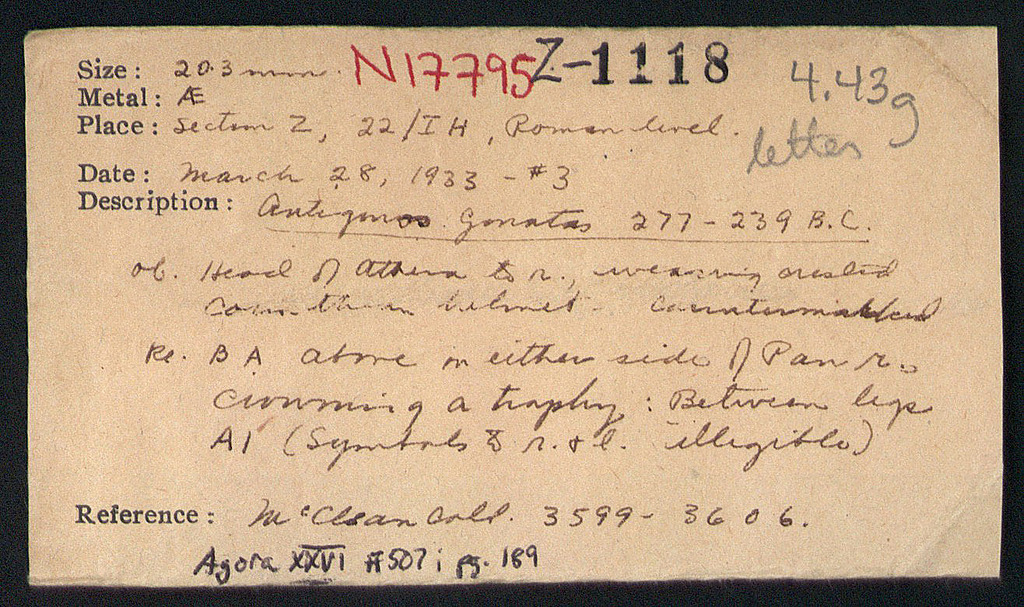 Size: 20.3 mm. N17795 Z-1118 4.43g
Metal: Æ
Place: Section Z, 22/IH, Roman level. letter
Date: March 28, 1933 - #3
Description: Antigonos Gonatas 277-239 B.C.
ob. Head of Athena to r., wearing crested
Corinthian helmet - Countermarked
Re. B A above on either side of Pan r.
Crowning a trophy: Between legs
A1 (Symbols to r. & l. illegible)
Reference: McClean Coll. 3599-3606.
Agora XXVI #507i pg. 189